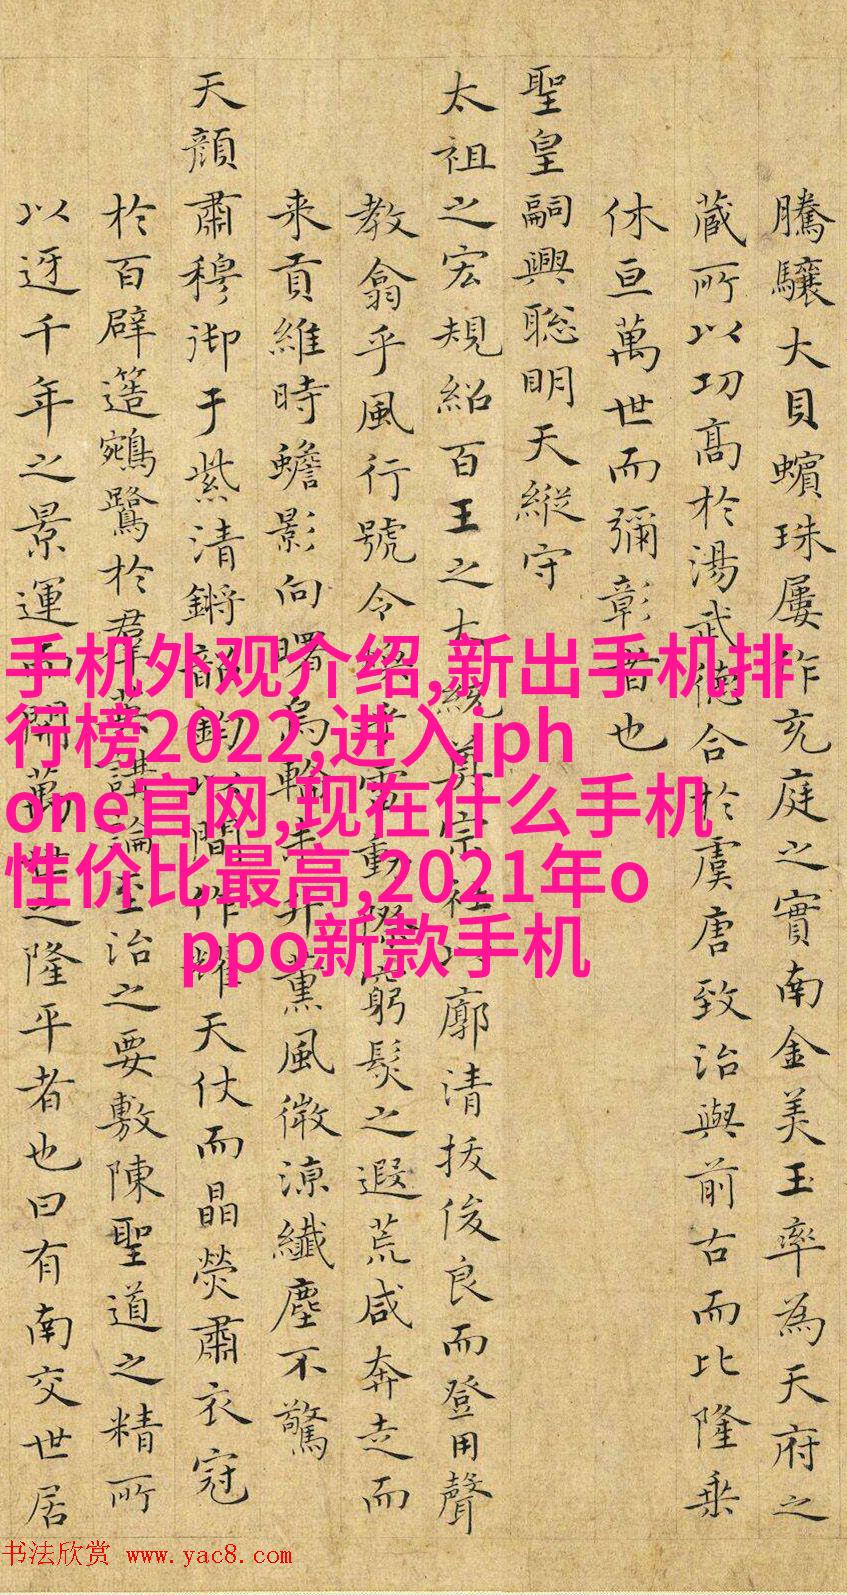 騰驤大貝蠙珠屢作充庭之實南金美玉率為天府之
藏所以功高於湯武德合於虞唐致治與前古而比隆乗
休亘萬世而彌彰者也
聖皇嗣興聡明天縱守
太祖之宏規紹百王之大統真宗社以廓清拔俊良而登用聲
教翕乎風行號令
動
窮髮之遐荒咸奔走而
来貢維時蟾影向曙烏輪
升薰風微涼纖塵不驚
天顔肅穆御于紫清鏘韶鈞
間作耀天仗而晶熒肅衣冠
於百辟簉鵷鷺於羣英講論至治之要敷陳聖道之精所
以迓千年之景運而開萬世之隆平者也曰有南交世居
手机外观介绍,新出手机排
行榜2022,进入iph
one官网,现在什么手机
性价比最高,2021年o
ppo新款手机
书法欣赏 www.yac8.com